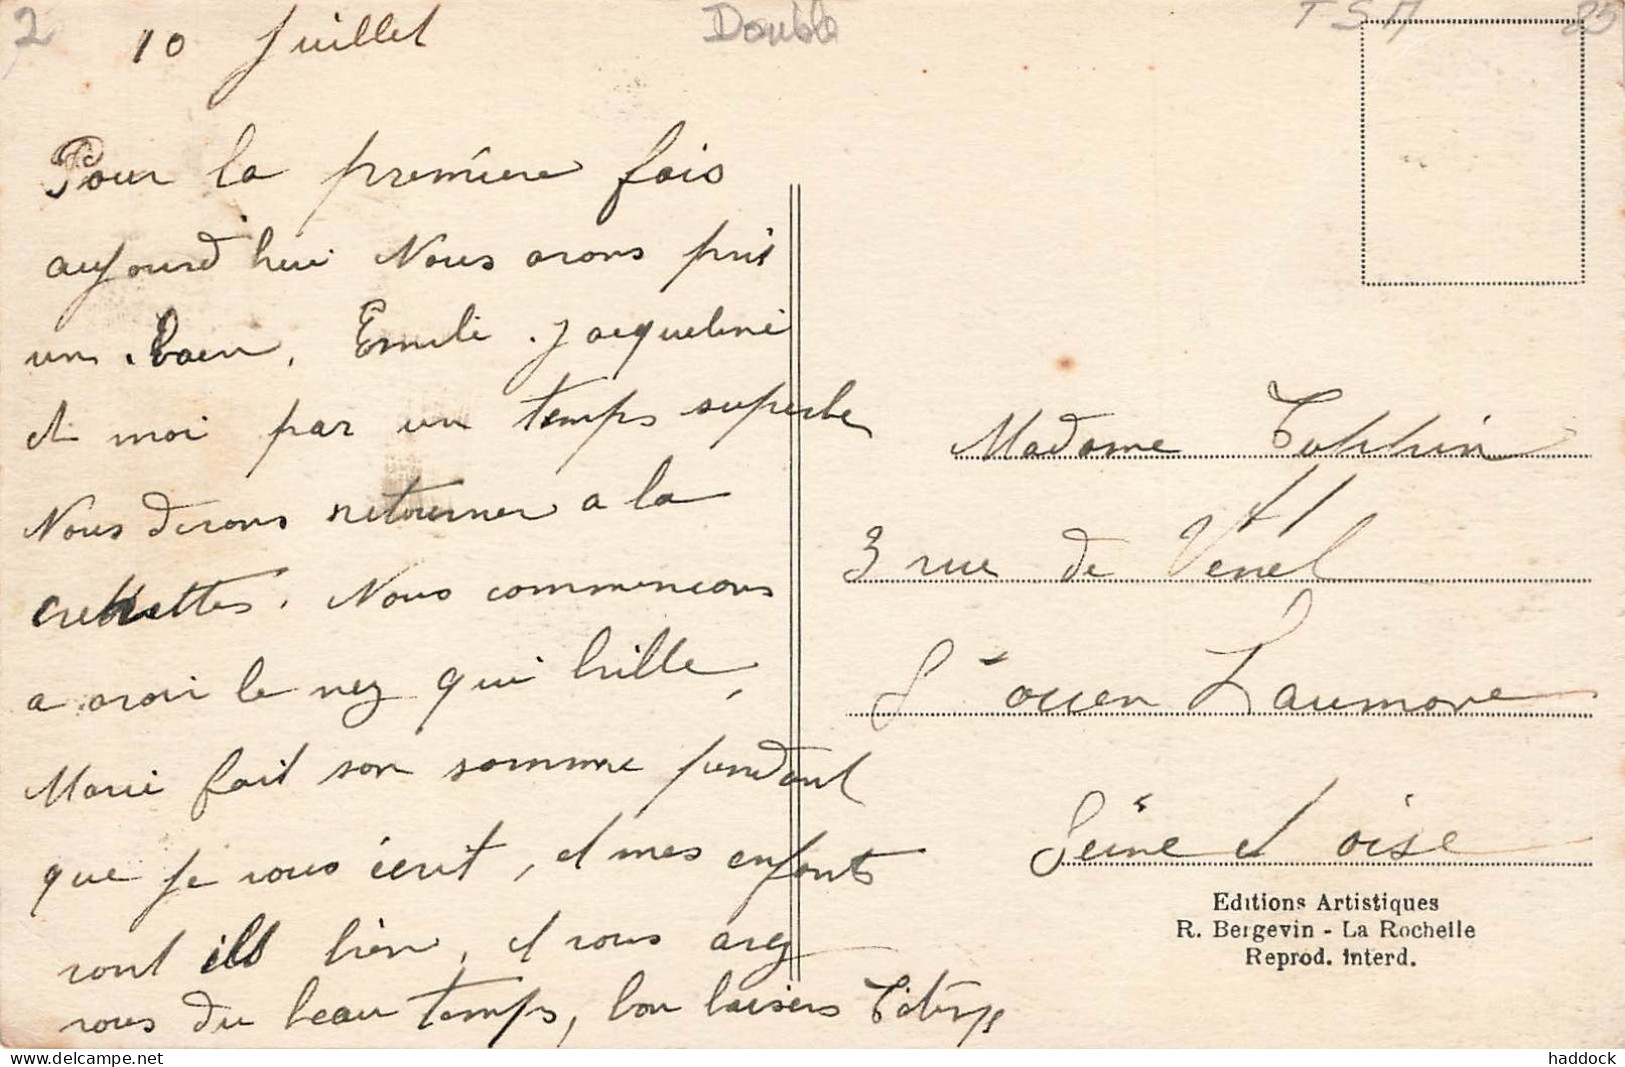 2
10 Juillet
Double
TSA
85
Pour la première fois
aujourd'hui Nous avons pris
un bain, Emile. Jacqueline
et moi par un temps superbe
Nous devons retourner a la
crevettes. Nous commencons
a avoir le nez qui brille,
Marie fait son somme pendant
que je vous écrit, et mes enfants
vont ils bien, et vous avez
vous du beau temps, bon baisers
Madame
3 rue de Venel
St ouen Laumone
Seine et oise
Editions Artistiques
R. Bergevin - La Rochelle
Reprod. Interd.
delcampe.net
haddock